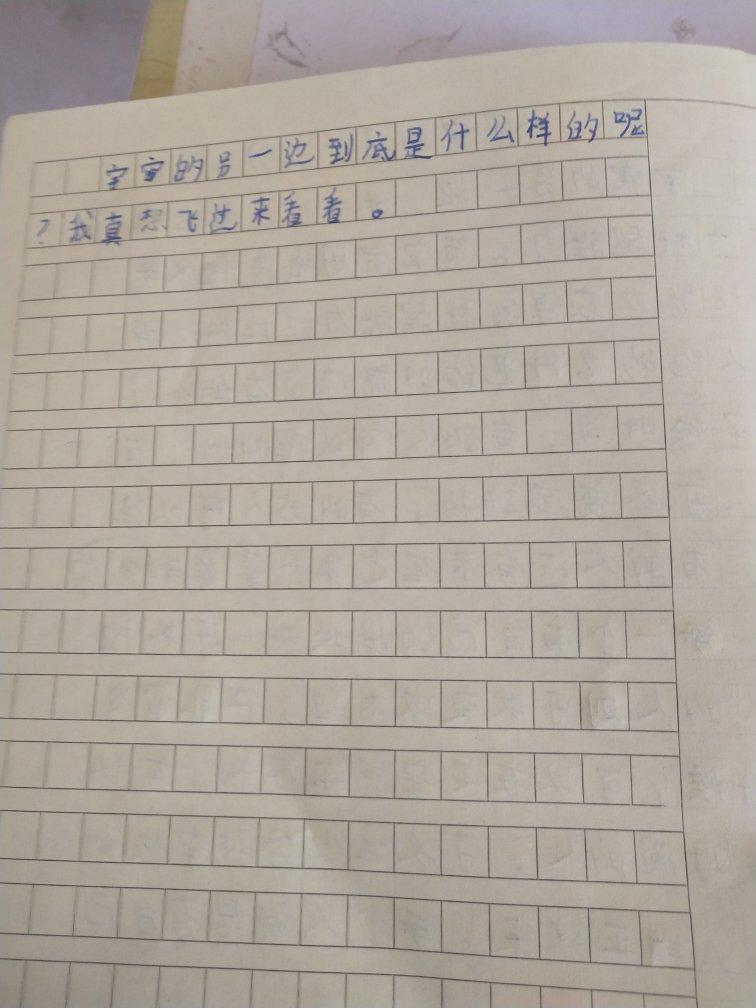 宇宙的另一边到底是什么样的呢
?我真想飞过来看看。